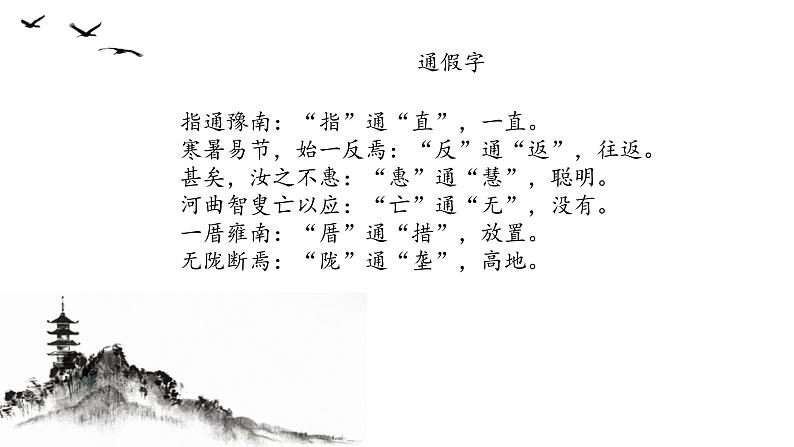 通假字
指通豫南：“指”通“直”，一直。
寒暑易节，始一反焉：“反”通“返”，往返。
甚矣，汝之不惠：“惠”通“慧”，聪明。
河曲智叟亡以应：“亡”通“无”，没有。
一厝雍南：“厝”通“措”，放置。
无陇断焉：“陇”通“垄”，高地。